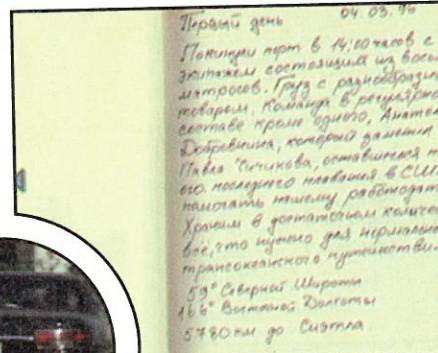 Первый день 04.03.96
Покинули порт в 14:00 часов с
экипажем состоящим из вось
матросов. Груз с разнообразны
товаром. Команда в регулярно
составе кроме одного, Анатол
Добровнина, который заменил
Павла Чичикова, оставшегося п
его последнего плавания в США
помогать нашему работодат
Храним в достаточном количес
все, что нужно для нормально
трансокеанского путешествия
59° Северной Широты
166° Восточной Долготы
5780 км до Сиэтла.